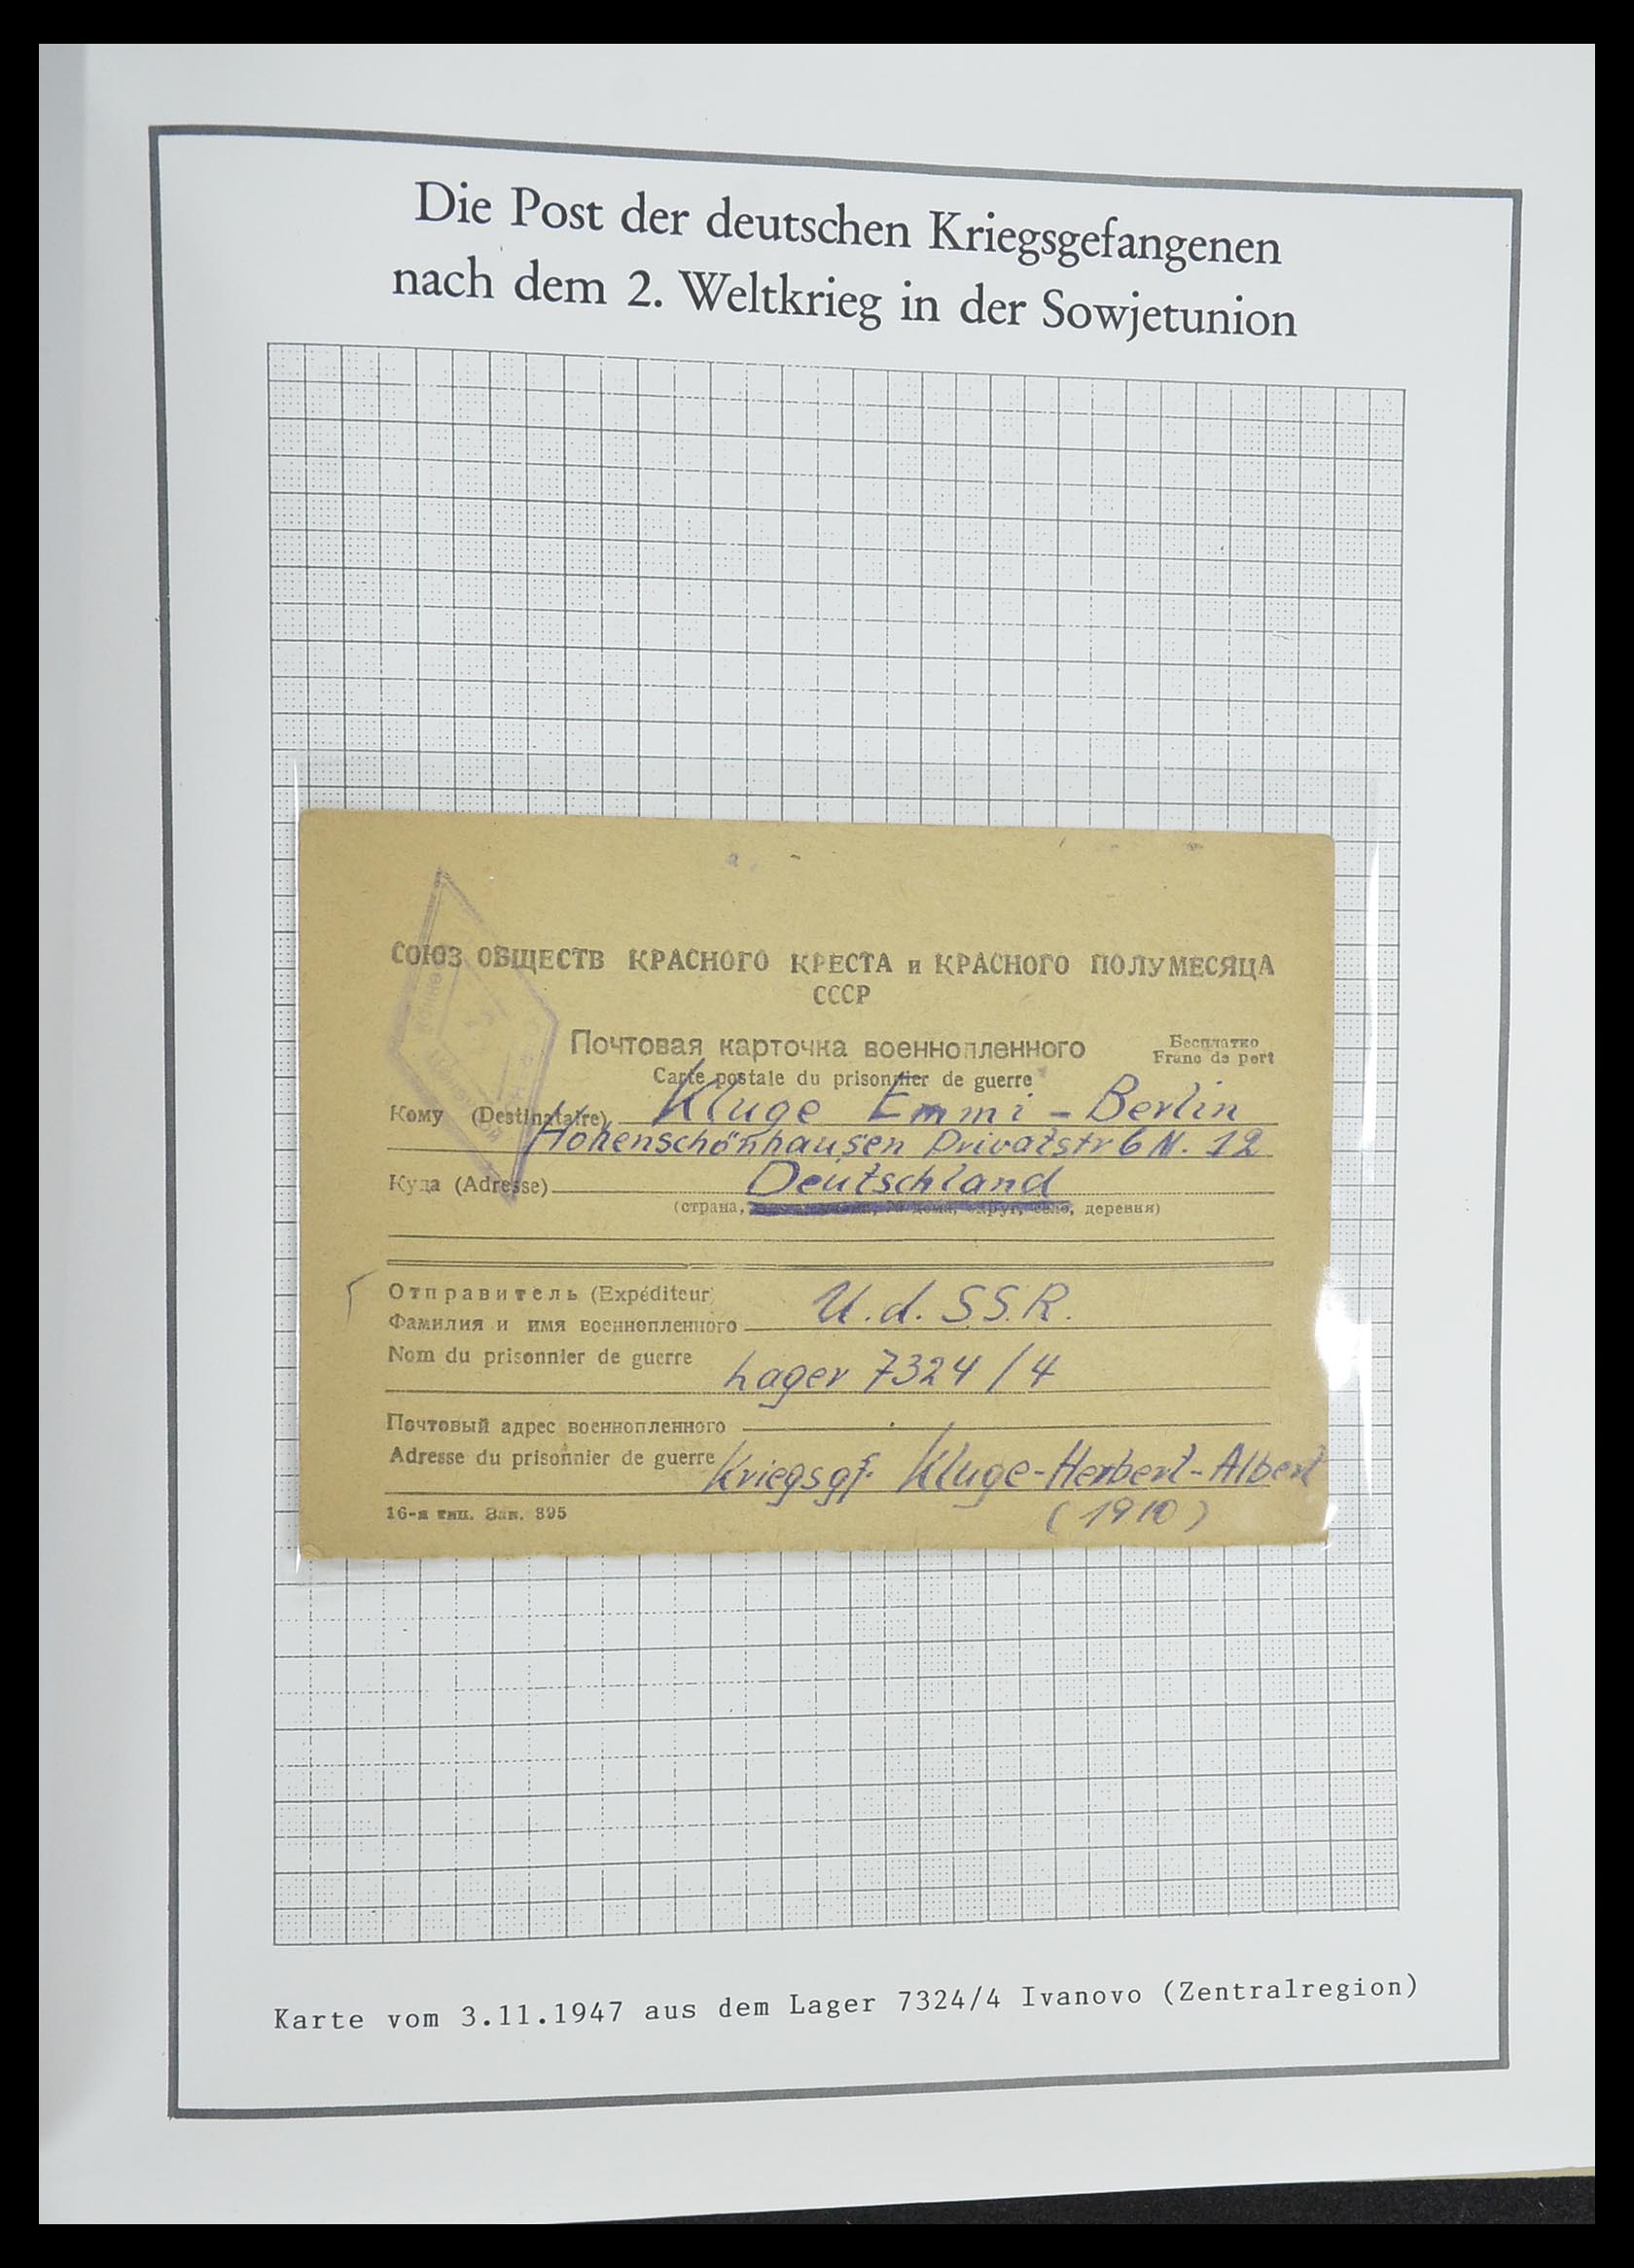 Die Post der deutschen Kriegsgefangenen
nach dem 2. Weltkrieg in der Sowjetunion
СОЮЗ ОБЩЕСТВ КРАСНОГО КРЕСТА и КРАСНОГО ПОЛУМЕСЯЦА
СССР
Почтовая карточка военнопленного
Бесплатно
Franc de port
Carte postale du prisonnier de guerre
Кому (Destinataire) Kluge Emmi - Berlin
Hohenschönhausen Privatstr 6 N. 12
Куда (Adresse) Deutschland
(страна, № дома, округ, село, деревня)
Отправитель (Expéditeur)
U.d.S.S.R.
Фамилия и имя военнопленного
Nom du prisonnier de guerre Lager 7324/4
Почтовый адрес военнопленного
Adresse du prisonnier de guerre Kriegsgf. Kluge-Herbert-Albert
16-я тип. Зак. 895
(1910)
Karte vom 3.11.1947 aus dem Lager 7324/4 Ivanovo (Zentralregion)